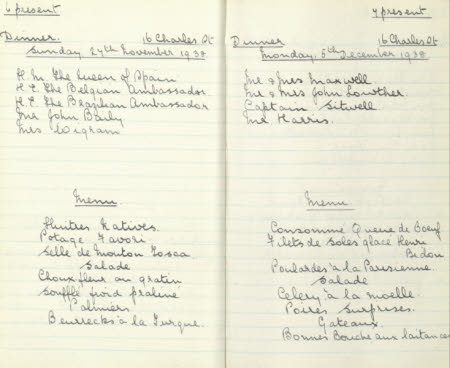 6 present
Dinner. 16 Charles St
Sunday 27th November 1938
H.M. The Queen of Spain
H.E. The Belgian Ambassador
H.E. The Brazilian Ambassador
Mr John Baily
Mrs Wigram
Menu
Huitres Natives.
Potage Favori
Selle de Mouton Tosca
Salade
Chouxfleur au gratin
Soufflé froid praline
Palmiers
Beurrecks à la Turque.
7 present
Dinner 16 Charles St
Monday, 5th December 1938
Mr & Mrs Maxwell
Mr & Mrs John Lowther.
Captain Sitwell
Mr Harris.
Menu
Consomme Queue de Boeuf
Filets de soles glacé Henri
Bidou
Poulardes à la Parisienne.
Salade
Celery à la moelle
Poires Surprises.
Gateaux.
Bonnes Bouche aux laitances